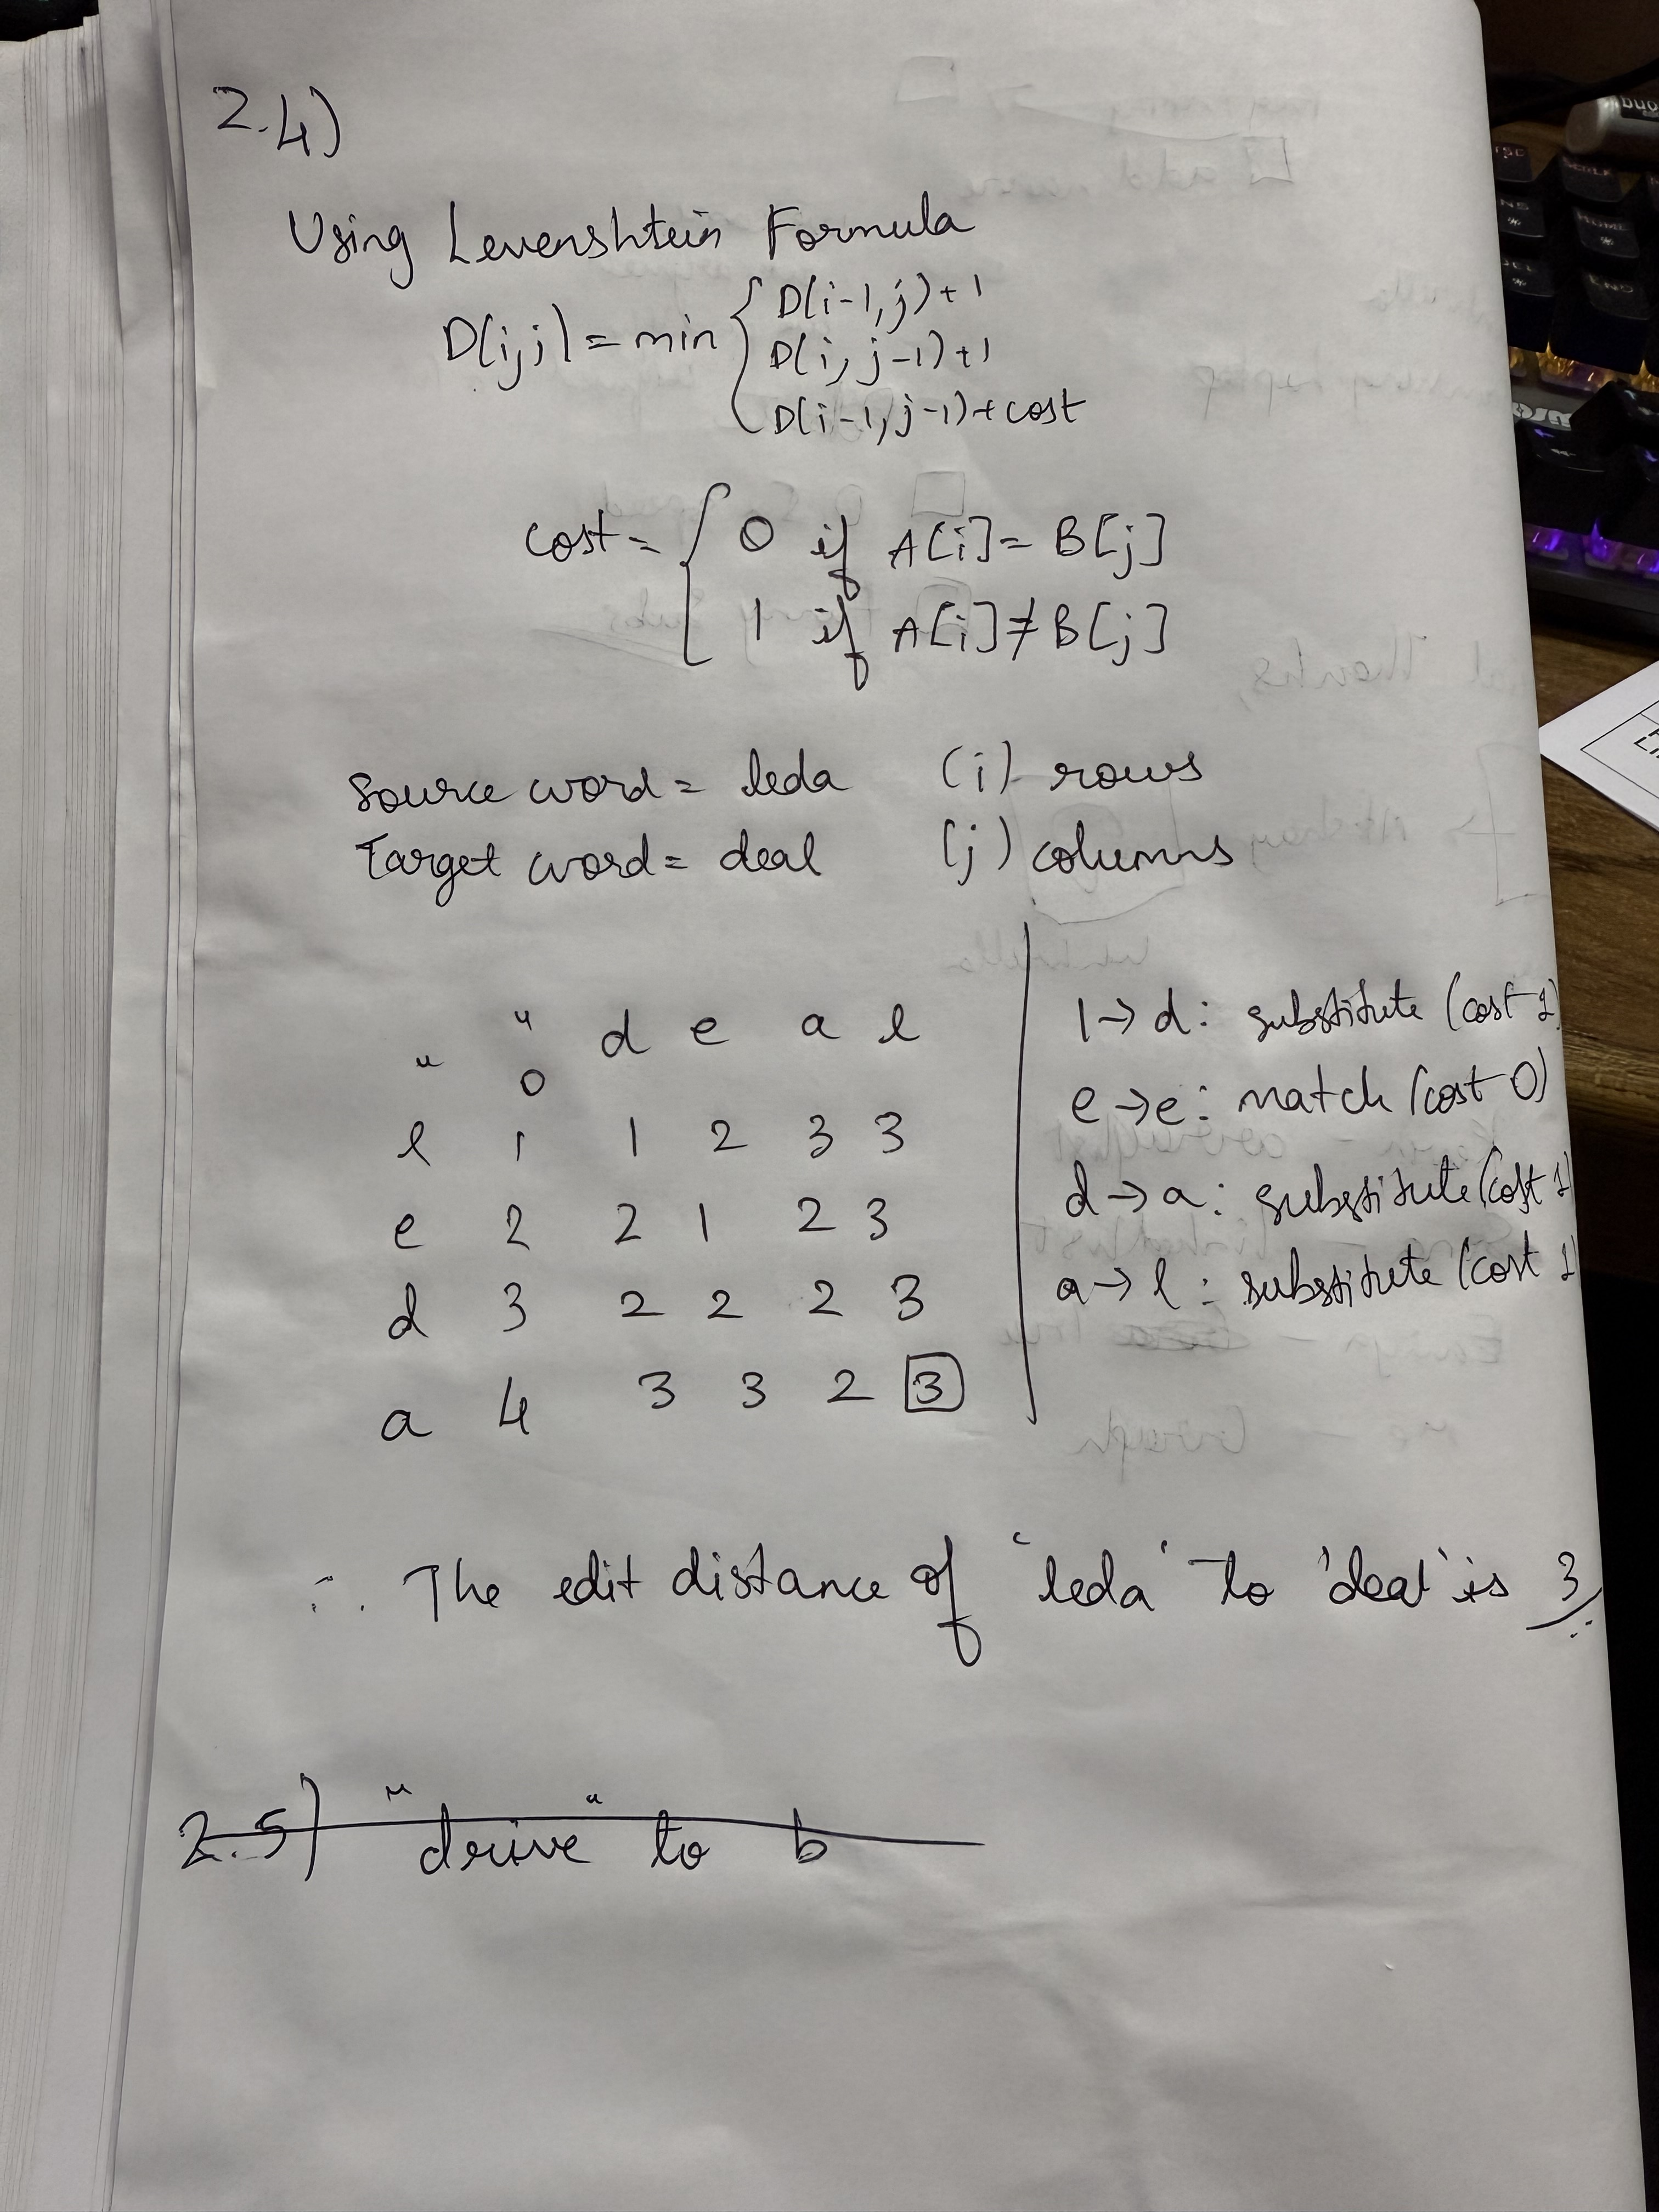 2.4)
Using Levenshtein Formula
D(i,j) = min { D(i-1,j)+1
D(i,j-1)+1
D(i-1,j-1)+cost
cost = { 0 if A[i] = B[j]
1 if A[i] ≠ B[j]
Source word = leda (i) rows
Target word = deal (j) columns
" d e a l
" 0
l 1 1 2 3 3
e 2 2 1 2 3
d 3 2 2 2 3
a 4 3 3 2 3
l → d : substitute (cost 1)
e → e : match (cost 0)
d → a : substitute (cost 1)
a → l : substitute (cost 1)
∴ The edit distance of 'leda' to 'deal' is 3
2.5) "drive" to b